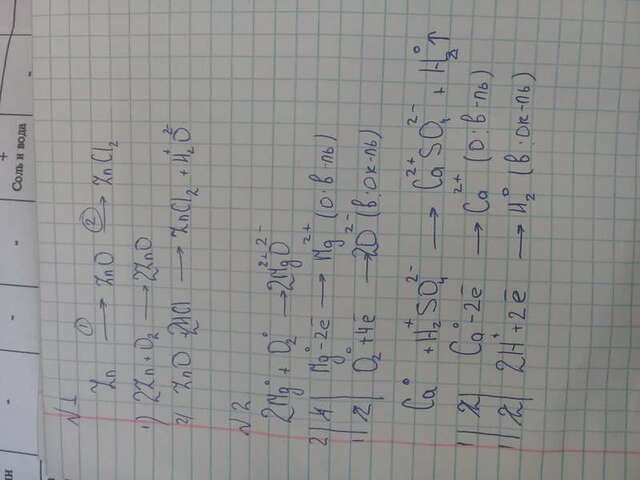 ли - - - + Соль и вода -
№1
Zn ①→ ZnO ②→ ZnCl₂
1) 2Zn + O₂ → 2ZnO
2) ZnO + 2HCl → ZnCl₂ + H₂⁺O²⁻
№2
2Mg⁰ + O₂⁰ → 2Mg²⁺O²⁻
2 | 4 | Mg⁰ - 2e̅ → Mg²⁺ (о. в-ль)
1 | 2 | O₂⁰ + 4e̅ → 2O²⁻ (в. ок-ль)
Ca⁰ + H₂⁺SO₄²⁻ → Ca²⁺SO₄²⁻ + H₂⁰↑
1 | 2 | Ca⁰ - 2e̅ → Ca²⁺ (о. в-ль)
1 | 2 | 2H⁺ + 2e̅ → H₂⁰ (в. ок-ль)